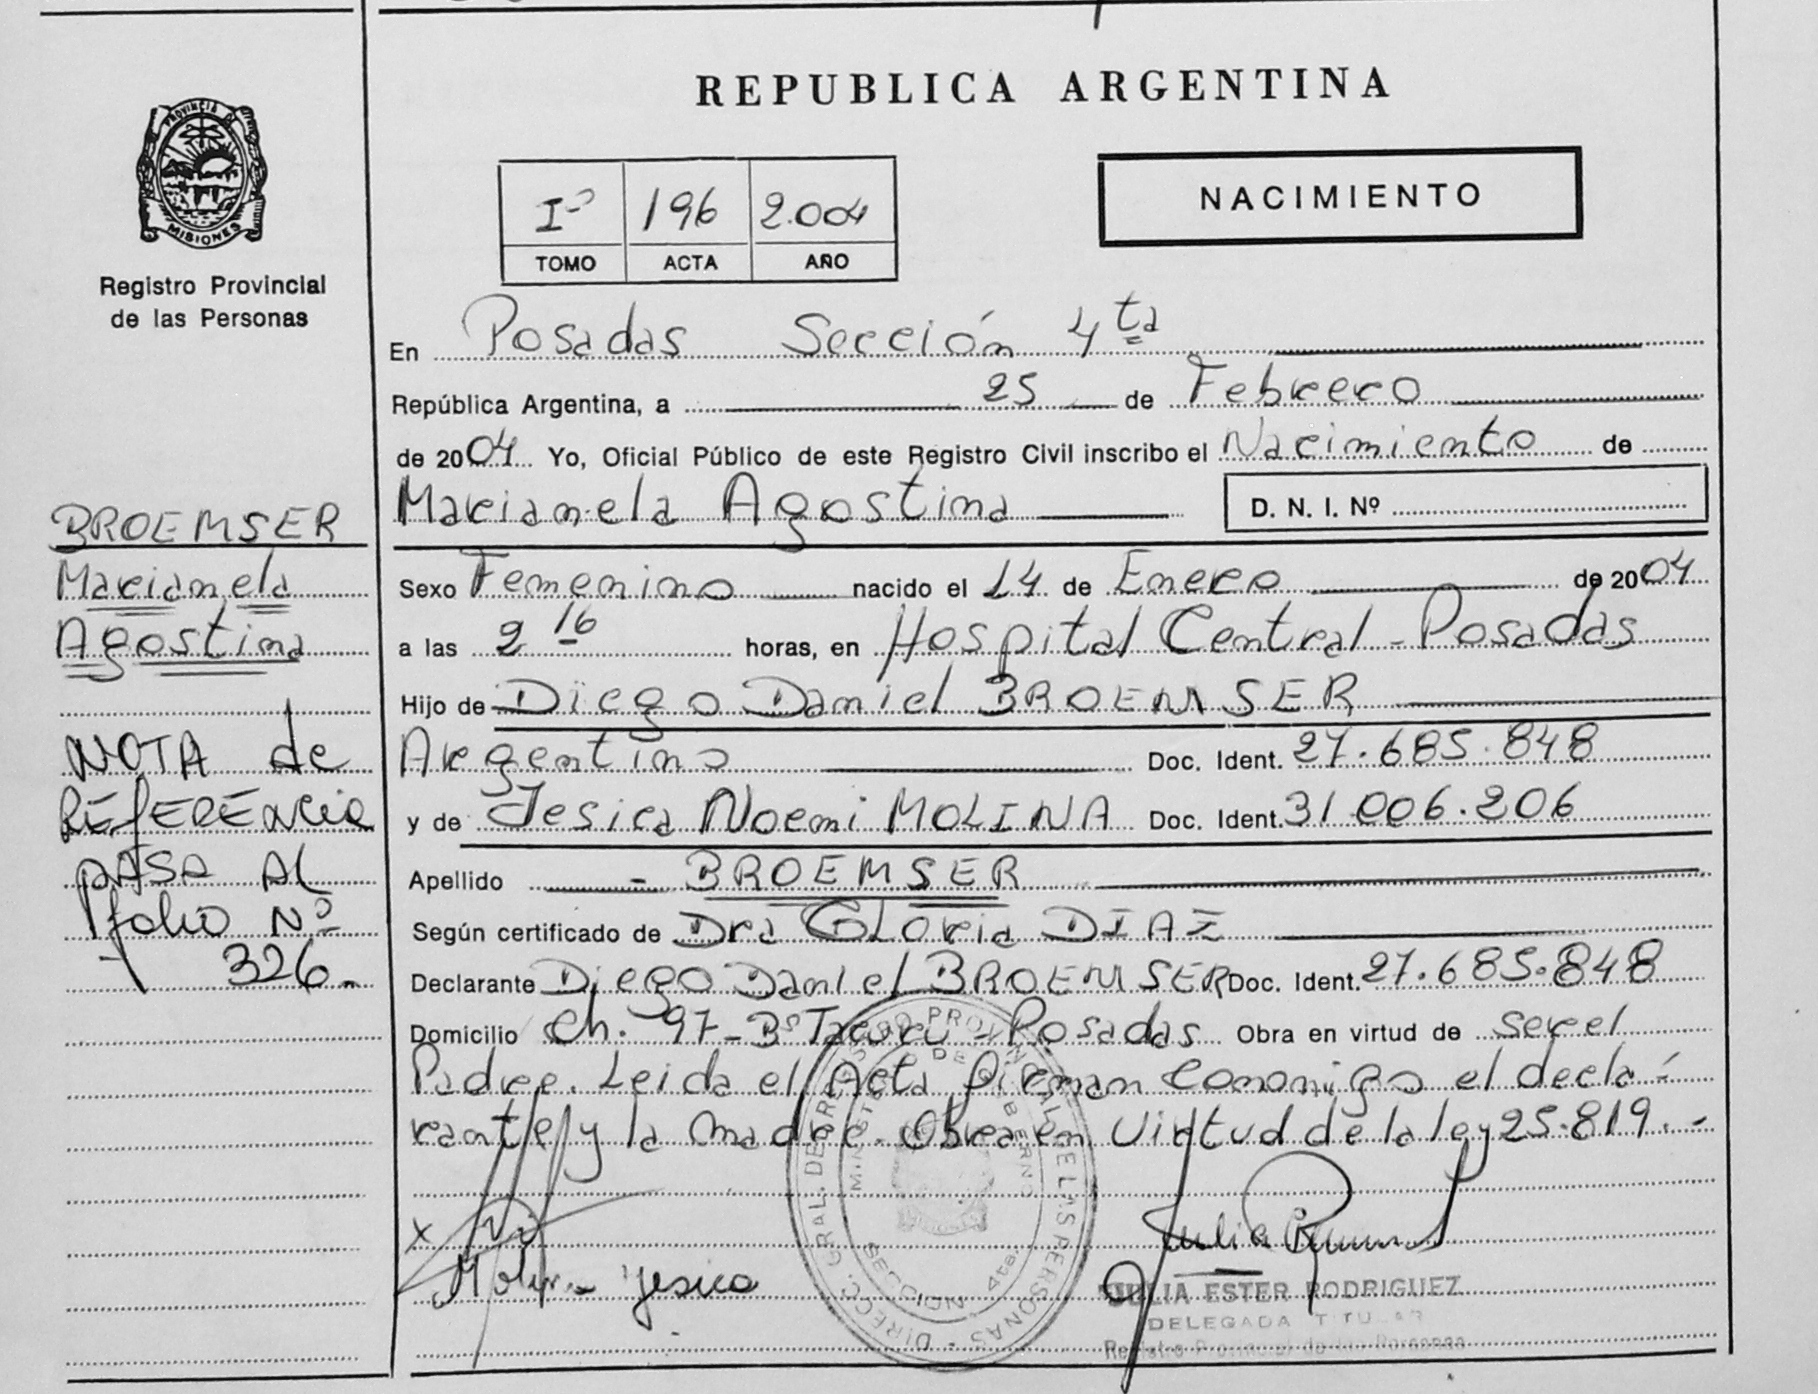 REPUBLICA ARGENTINA
PROVINCIA DE
MISIONES
Registro Provincial
de las Personas
Iº 196 2.004
TOMO ACTA AÑO
NACIMIENTO
En Posadas Sección 4ta
República Argentina, a 25 de Febrero
de 2004 Yo, Oficial Público de este Registro Civil inscribo el Nacimiento de
Marianela Agostina D. N. I. Nº
Sexo Femenino nacido el 14 de Enero de 2004
a las 2 16 horas, en Hospital Central - Posadas
Hijo de Diego Daniel BROEMSER
Argentino Doc. Ident. 27.685.848
y de Jesica Noemi MOLINA Doc. Ident. 31.006.206
Apellido - BROEMSER
Según certificado de Dra GLoria DIAZ
Declarante Diego Daniel BROEMSER Doc. Ident. 27.685.848
Domicilio Ch. 97 - Bº Tacuru - Posadas Obra en virtud de ser el
Padre. Leida el Acta firman conmigo el decla-
rante y la madre. Obra en Virtud de la ley 25.819.-
BROEMSER
Marianela
Agostina
NOTA de
REfERENcia
pASA Al
folio Nº
326.-
x
Molina Yesica
DIRECC. GRAL. DE REGISTRO PROVINCIAL DE LAS PERSONAS
MINISTERIO DE GOBIERNO
SECCION 4ta.
JULIA ESTER RODRIGUEZ
DELEGADA TITULAR
Registro Provincial de las Personas